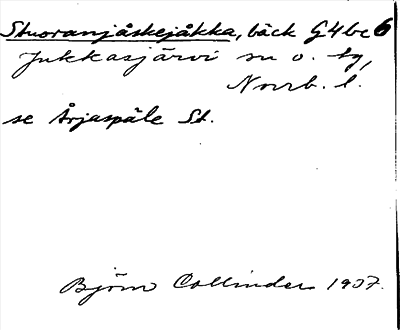 Stuoranjåskejåkka, bäck G4bc 6
Jukkasjärvi sn o. tg,
Norrb. l.
se Årjaspäle St.
Björn Collinder 1937.